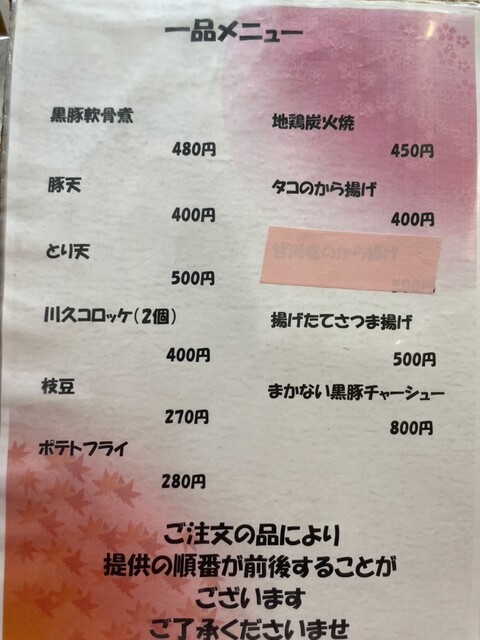 一品メニュー
黒豚軟骨煮
480円
豚天
400円
とり天
500円
川久コロッケ(2個)
400円
枝豆
270円
ポテトフライ
280円
地鶏炭火焼
450円
タコのから揚げ
400円
のから揚げ
500円
揚げたてさつま揚げ
500円
まかない黒豚チャーシュー
800円
ご注文の品により
提供の順番が前後することが
ございます
ご了承くださいませ